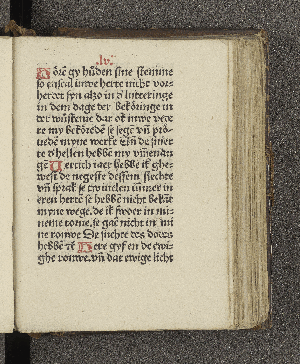 lv.
Oftē gy hūden sine stemme
so en sal iuwe herte nicht vor-
herdet syn alzo in d' bitteringe
in dem dage der bekoringe in
der wustenie dar ok iuwe vede
re my bekoredē se segē vn̄ pro-
uedē myne werke
te d' hellen hebbē my vmmevan
gē Vertich iaer hebbe ik ghe-
west de negeste dessem slechte
vn̄ sprak se dwuelen ummer in
eren herte se hebbē nicht bekāt
myne wege. de ik swoer in mi-
neme torne. se gaē nicht in mi
ne rouwe De suchte des dodes
hebbē rc̄ Here gyf en de ewi-
ghe rouwe. vn̄ dat ewige licht